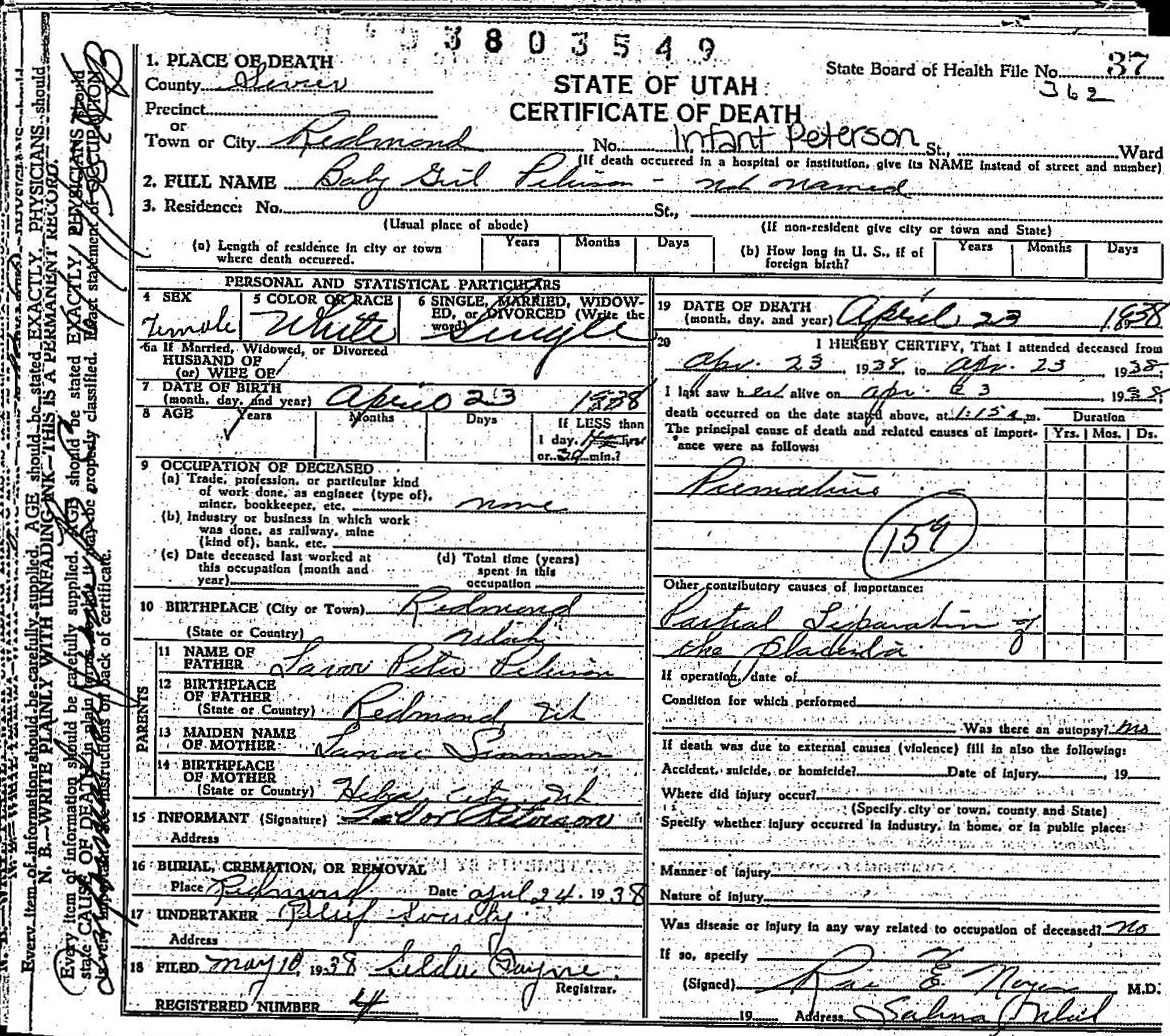 3803549
1. PLACE OF DEATH
State Board of Health File No. 37
County Sevier
STATE OF UTAH
362
Precinct
CERTIFICATE OF DEATH
or
Town or City Redmond No. Infant Peterson St., Ward
(If death occurred in a hospital or institution, give its NAME instead of street and number)
2. FULL NAME Baby Girl Peterson - not named
3. Residence: No. St.,
(Usual place of abode) (If non-resident give city or town and State)
(a) Length of residence in city or town where death occurred. Years Months Days
(b) How long in U. S., if of foreign birth? Years Months Days
PERSONAL AND STATISTICAL PARTICULARS
4 SEX Female
5 COLOR OR RACE White
6 SINGLE, MARRIED, WIDOWED, or DIVORCED (Write the word) Single
6a If Married, Widowed, or Divorced
HUSBAND OF
(or) WIFE OF
7 DATE OF BIRTH
(month, day, and year) April 23 1938
8 AGE Years Months Days
If LESS than
1 day,
or 30 min.?
9 OCCUPATION OF DECEASED
(a) Trade, profession, or particular kind
of work done, as engineer (type of),
miner, bookkeeper, etc. none
(b) Industry or business in which work
was done, as railway, mine
(kind of), bank, etc.
(c) Date deceased last worked at
this occupation (month and
year)
(d) Total time (years)
spent in this
occupation
10 BIRTHPLACE (City or Town) Redmond
(State or Country) Utah
PARENTS
11 NAME OF
FATHER Peter Peterson
12 BIRTHPLACE
OF FATHER
(State or Country) Redmond, Ut
13 MAIDEN NAME
OF MOTHER Simmons
14 BIRTHPLACE
OF MOTHER
(State or Country) City Ut
15 INFORMANT (Signature) Peterson
Address
16 BURIAL, CREMATION, OR REMOVAL
Place Redmond Date April 24, 1938
17 UNDERTAKER Relief Society
Address
18 FILED May 10, 1938
Registrar.
REGISTERED NUMBER 4
19 DATE OF DEATH
(month, day, and year) April 23 1938
20 I HEREBY CERTIFY, That I attended deceased from
Apr. 23 1938 to Apr. 23 1938
I last saw her alive on Apr. 23 1938
death occurred on the date stated above, at 1:15 a. m.
The principal cause of death and related causes of importance were as follows:
Duration
Yrs. Mos. Ds.
Premature
159
Other contributory causes of importance:
Partial Separation of
the placenta
If operation, date of
Condition for which performed
Was there an autopsy? no
If death was due to external causes (violence) fill in also the following:
Accident, suicide, or homicide? Date of injury , 19
Where did injury occur?
(Specify city or town, county and State)
Specify whether injury occurred in industry, in home, or in public place:
Manner of injury
Nature of injury
Was disease or injury in any way related to occupation of deceased? no
If so, specify
(Signed) Rae E Noyes M.D.
19 Address Salina Utah
N. B.—WRITE PLAINLY WITH UNFADING INK—THIS IS A PERMANENT RECORD.
Every item of information should be carefully supplied. AGE should be stated EXACTLY. PHYSICIANS should
state CAUSE OF DEATH in plain terms, so that it may be properly classified. Exact statement of OCCUPATION
is very important. See instructions on back of certificate.